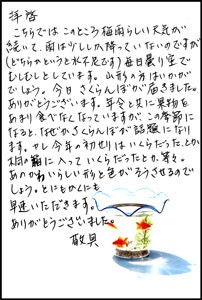 拝啓
こちらではこのところ梅雨らしい天気が
続いて、雨は少ししか降っていないのですが
(どちらかというと水不足です)毎日曇り空で
むしむしとしています。山形の方はいかがで
でしょう。今日さくらんぼが届きました。
ありがとうございます。年令と共に果物を
あまり食べなくなっていますが、この季節に
なると、なぜかさくらんぼが話題になり
ます。やし今年の初せりはいくらだった、とか
桐の箱に入っていくらだったとか、等々。
あのかわいらしい形と色がそうさせるのでし
ょう。とにもかくにも
早速いただきます。
ありがとうございました。
敬具